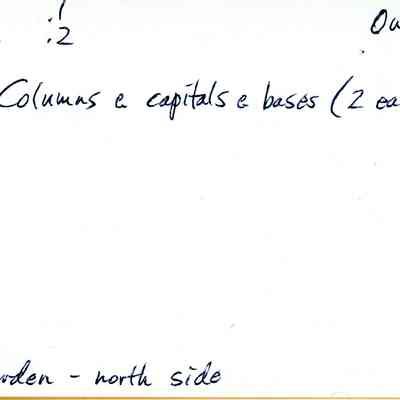 .1
.2
Ou
Columns & capitals & bases (2 ea
rden - north side